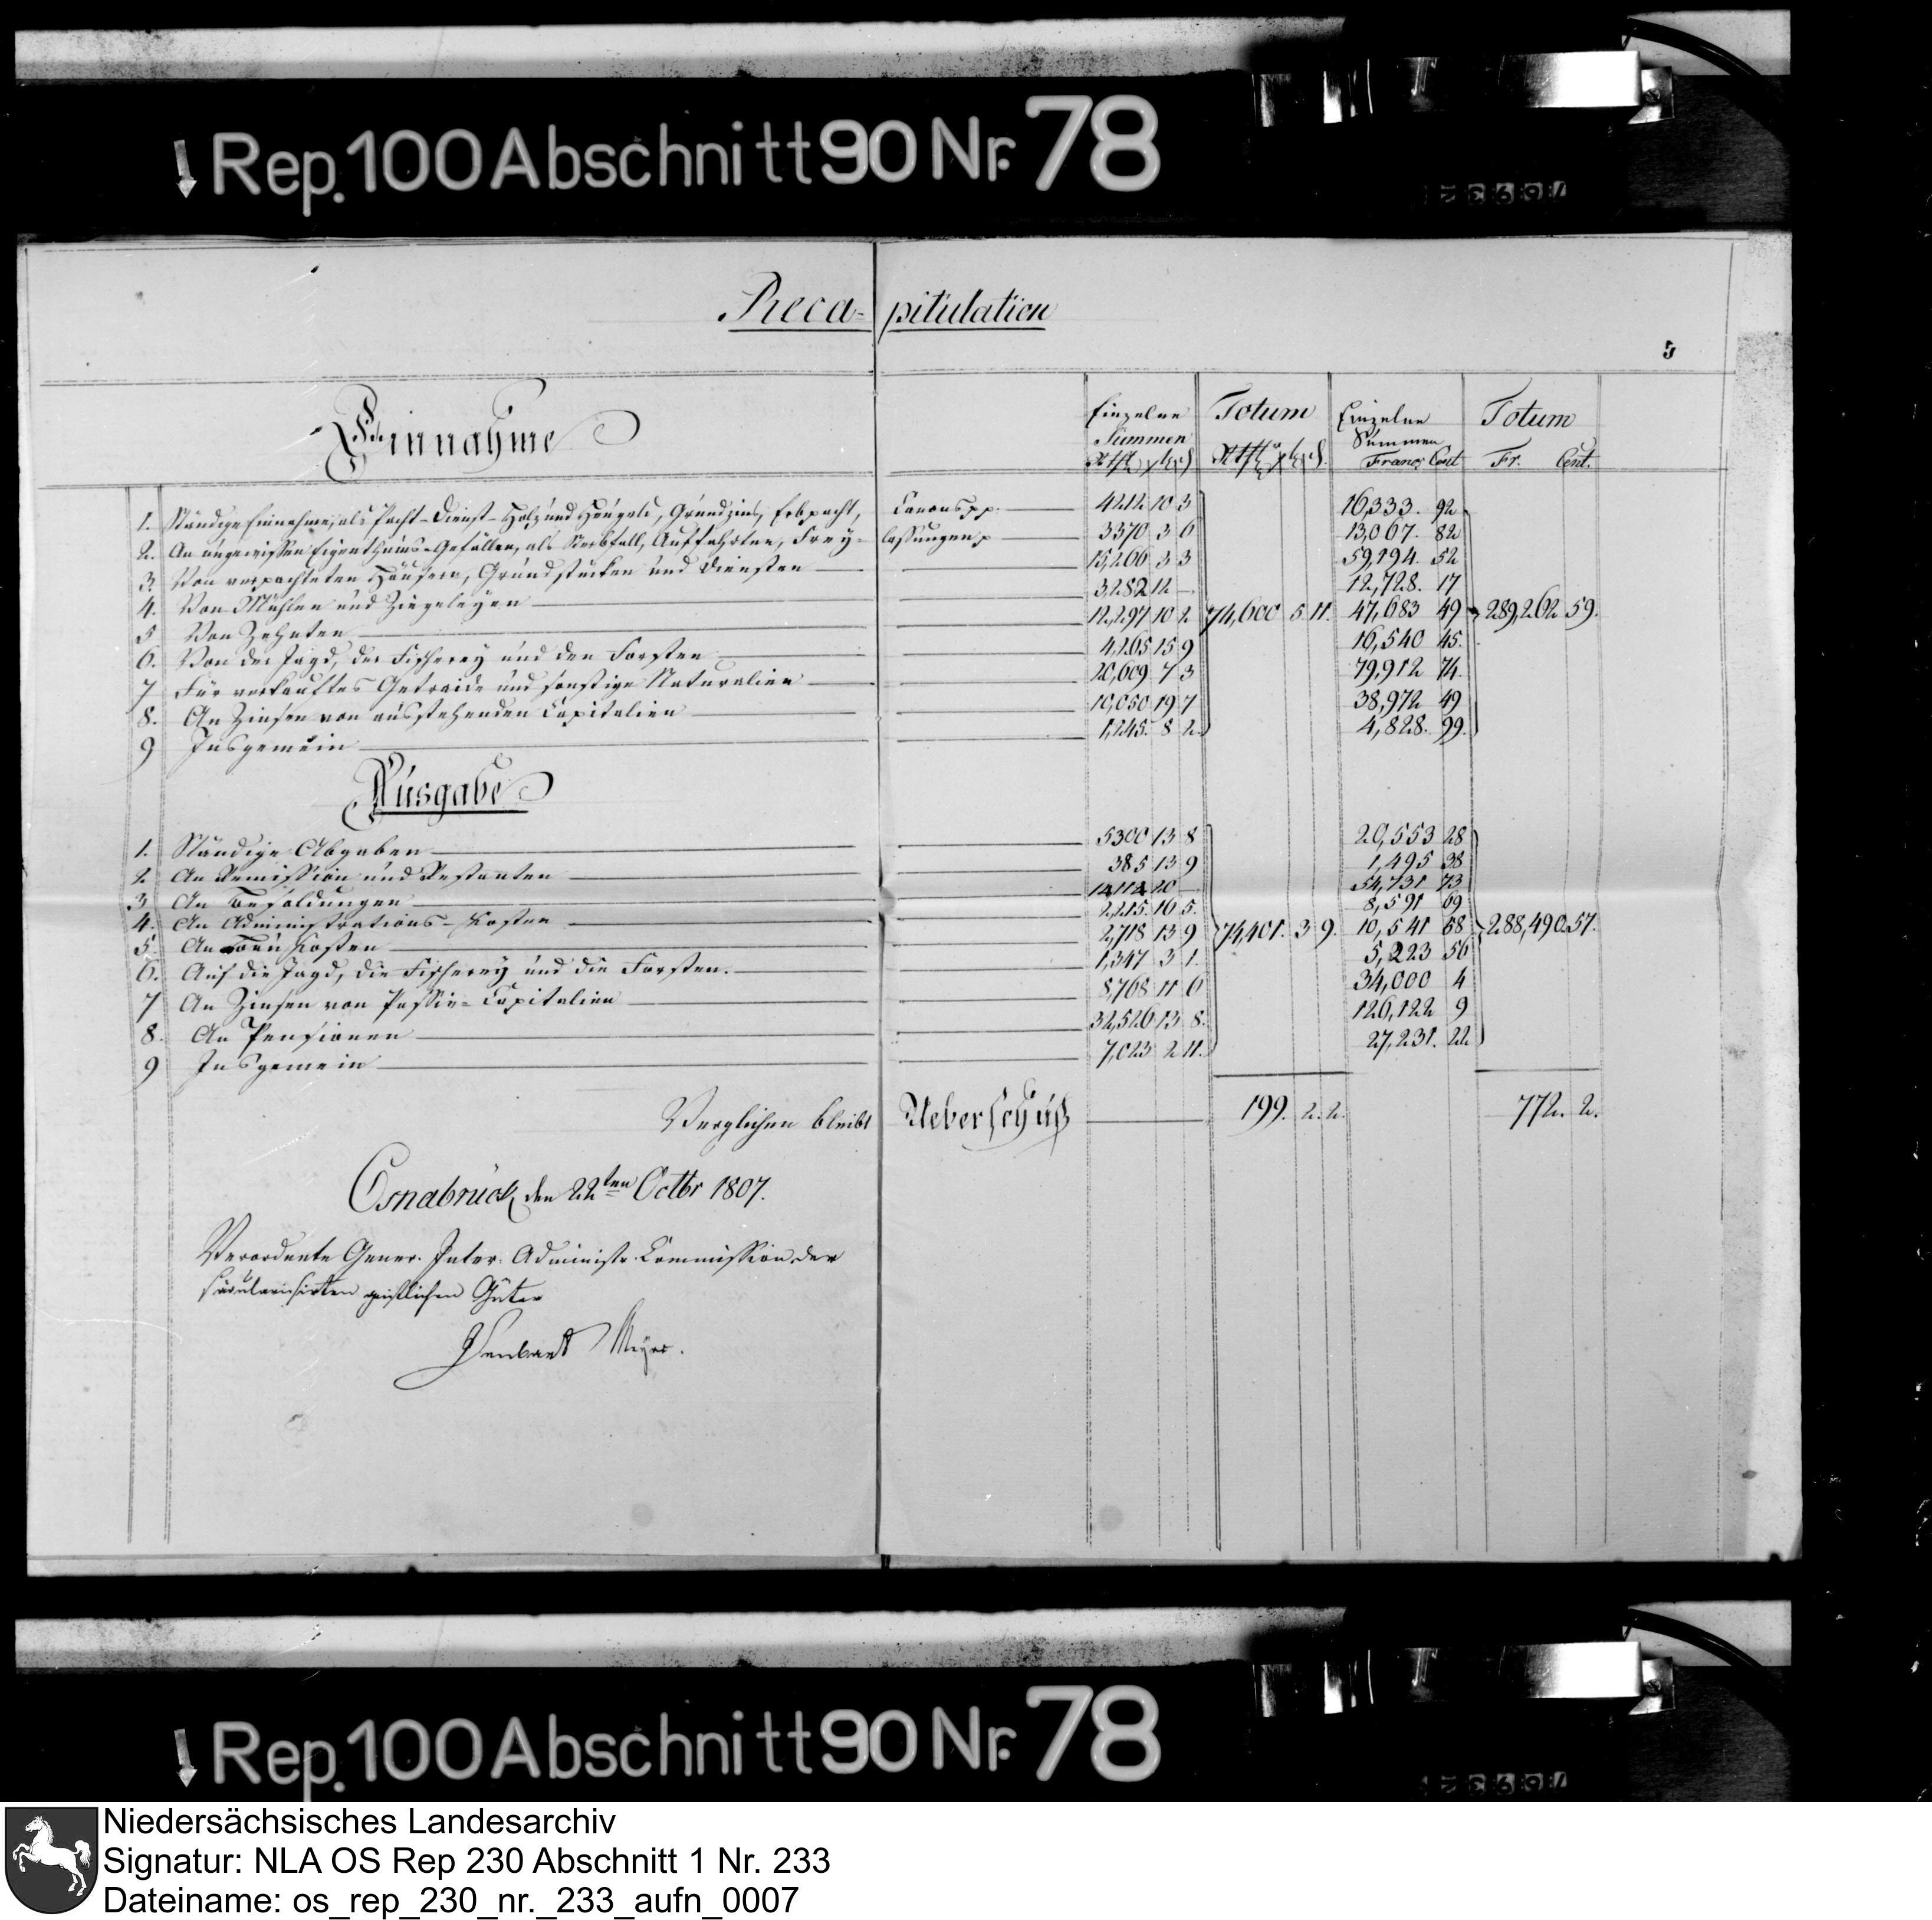 Rep. 100 Abschnitt 90 Nr. 78
Reca- pitulation
5
Einnahme
Einzelne Summen
Totum
Einzelne Summen Francs Cent
Totum Fr. Cent.
1. Ständige Einnahme, als Pacht-Dienst-Holz und Heugeld, Grundzins, Erbpacht, Canons pp. 4212 10 3 16,333. 92
2. An ungewissen Eigenthums-Gefällen, als Sterbfall, Auffahrten, Frey- lassungen p 3370 3 6 13,067. 82
3. Von verpachteten Häusern, Grundstücken und Diensten 15,266 3 3 59,194. 52
4. Von Mühlen und Ziegeleyen 3,282 12 — 12,728. 17
5 Von Zehnten 12,297 10 2 74,600 5 11. 47,683 49 289,262 59.
6. Von der Jagd, der Fischerey und den Forsten 4,265 15 9 16,540 45.
7 Für verkauftes Getraide und sonstige Naturalien 20,609 7 3 79,912 74.
8. An Zinsen von ausstehenden Capitalien 10,050 19 7 38,972 49
9 Insgemein 1,245. 8 2. 4,828. 99.
Ausgabe
1. Ständige Abgaben 5300 13 8 20,553 28
2 An Remission und Restanten 385 13 9 1,495 38
3 An Besoldungen 14114 20 — 54,731 73
4. An Administrations-Kosten 2,215. 16 5. 8,591 69
5. An Bau Kosten 2,718 13 9 74,401. 3 9. 10,541 58 288,490 57.
6. Auf die Jagd, die Fischerey und die Forsten. 1,347 3 1. 5,223 56
7 An Zinsen von Passiv-Capitalien 8,768 11 6 34,000 4
8. An Pensionen 32,526 13 8. 126,122 9
9 Insgemein 7,023 2 11. 27,231. 22
Verglichen bleibt Ueberschuß 199. 2. 2. 772. 2.
Osnabrück den 22ten Octbr 1807.
Verordnete Gener. Inter. Administr. Commission der
säcularisirten geistlichen Güter
Meyer.
Rep. 100 Abschnitt 90 Nr. 78
Niedersächsisches Landesarchiv
Signatur: NLA OS Rep 230 Abschnitt 1 Nr. 233
Dateiname: os_rep_230_nr._233_aufn_0007